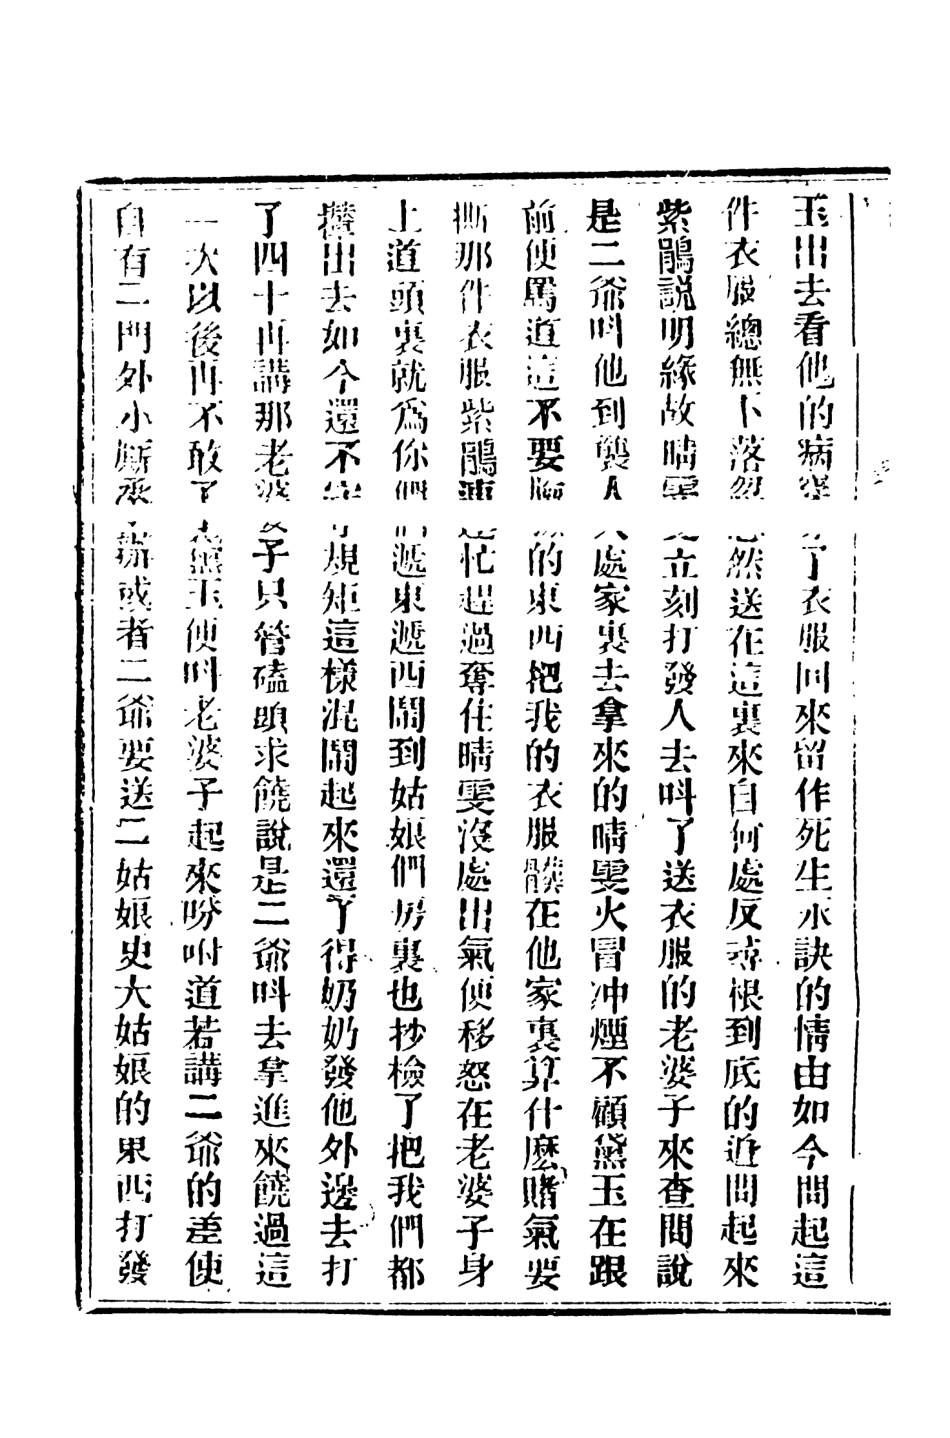 玉出去看他的病穿了衣服回來留作死生永訣的情由如今問起這
件衣服總無下落忽然送在這裏來自何處反尋根到底的近問起來
紫鵑說明緣故晴雯立刻打發人去呌了送衣服的老婆子來查問說
是二爺呌他到襲人處家裏去拿來的晴雯火冒冲煙不顧黛玉在跟
前便罵道這不要臉的東西把我的衣服髒在他家裏算什麽賭氣要
撕那件衣服紫鵑連忙趕過奪住晴雯沒處出氣便移怒在老婆子身
上道頭裏就爲你們遞東遞西鬧到姑娘們房裏也抄檢了把我們都
攆出去如今還不守規矩這樣混鬧起來還了得奶奶發他外邊去打
了四十再講那老婆子只管磕頭求饒說是二爺呌去拿進來饒過這
一次以後再不敢了黛玉便呌老婆子起來吩咐道若講二爺的差使
自有二門外小廝承辦或者二爺要送二姑娘史大姑娘的東西打發